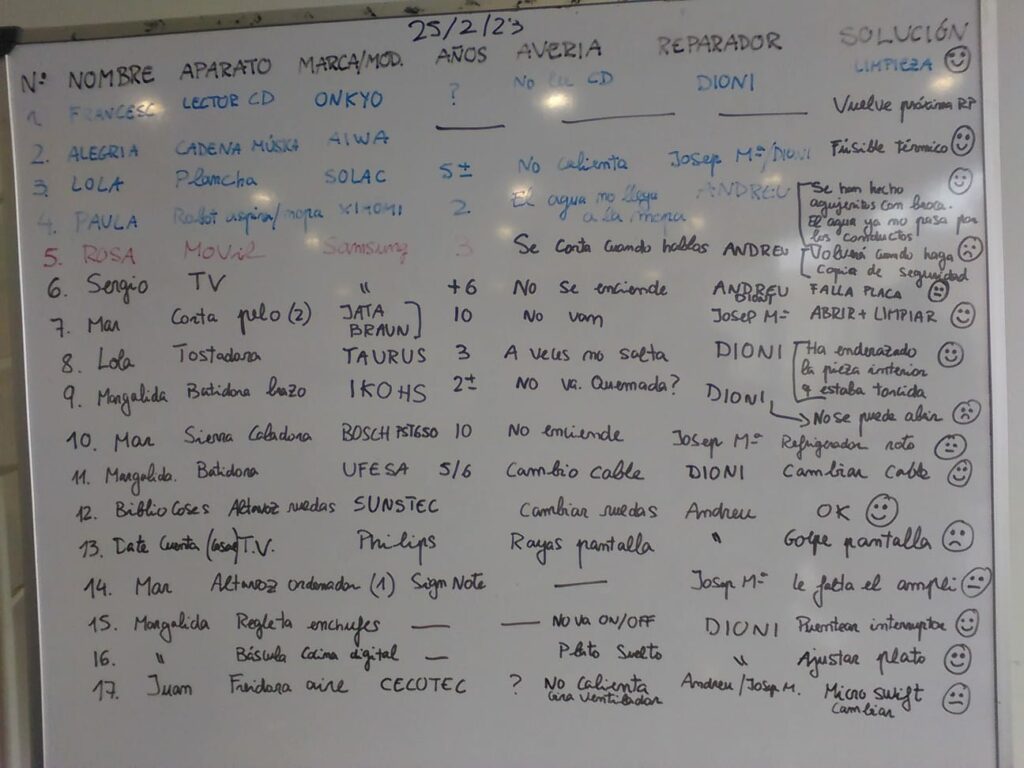 25/2/23
Nº NOMBRE APARATO MARCA/MOD. AÑOS AVERIA REPARADOR SOLUCIÓN
1. FRANCESC LECTOR CD ONKYO ? No lee CD DIONI LIMPIEZA
2. ALEGRIA CADENA MÚSICA AIWA — — — Vuelve próxima RP
3. LOLA Plancha SOLAC 5± No calienta Josep Mª/DIONI Fusible térmico
4. PAULA Robot aspira/mopa XIAOMI 2 El agua no llega a la mopa ANDREU Se han hecho
agujeritos con broca.
El agua ya no pasa por
los conductos
5. ROSA MOVIL Samsung 3 Se corta cuando hablas ANDREU Volverá cuando haga
copia de seguridad
6. Sergio TV " +6 No se enciende ANDREU FALLA PLACA
7. Mar Corta pelo (2) JATA
BRAUN 10 No van Josep Mª ABRIR + LIMPIAR
8. Lola Tostadora TAURUS 3 A veces no salta DIONI Ha enderezado
la pieza interior
q estaba torcida
9. Margalida Batidora brazo IKOHS 2± No va. Quemada? DIONI No se puede abrir
10. Mar Sierra Caladora BOSCH PST650 10 No enciende Josep Mª Refrigerador roto
11. Margalida. Batidora UFESA 5/6 Cambio cable DIONI Cambiar cable
12. BiblioCoses Altavoz ruedas SUNSTEC Cambiar ruedas Andreu OK
13. Date Cuenta (casa) T.V. Philips Rayas pantalla " Golpe pantalla
14. Mar Altavoz ordenador (1) Sign Note — Josep Mª le falta el ampli
15. Margalida Regleta enchufes — — No va ON/OFF DIONI Puentear interruptor
16. " Báscula Cocina digital — Plato Suelto " Ajustar plato
17. Juan Freidora aire CECOTEC ? No calienta
Gira ventilador Andreu/Josep M. Micro swift
Cambiar